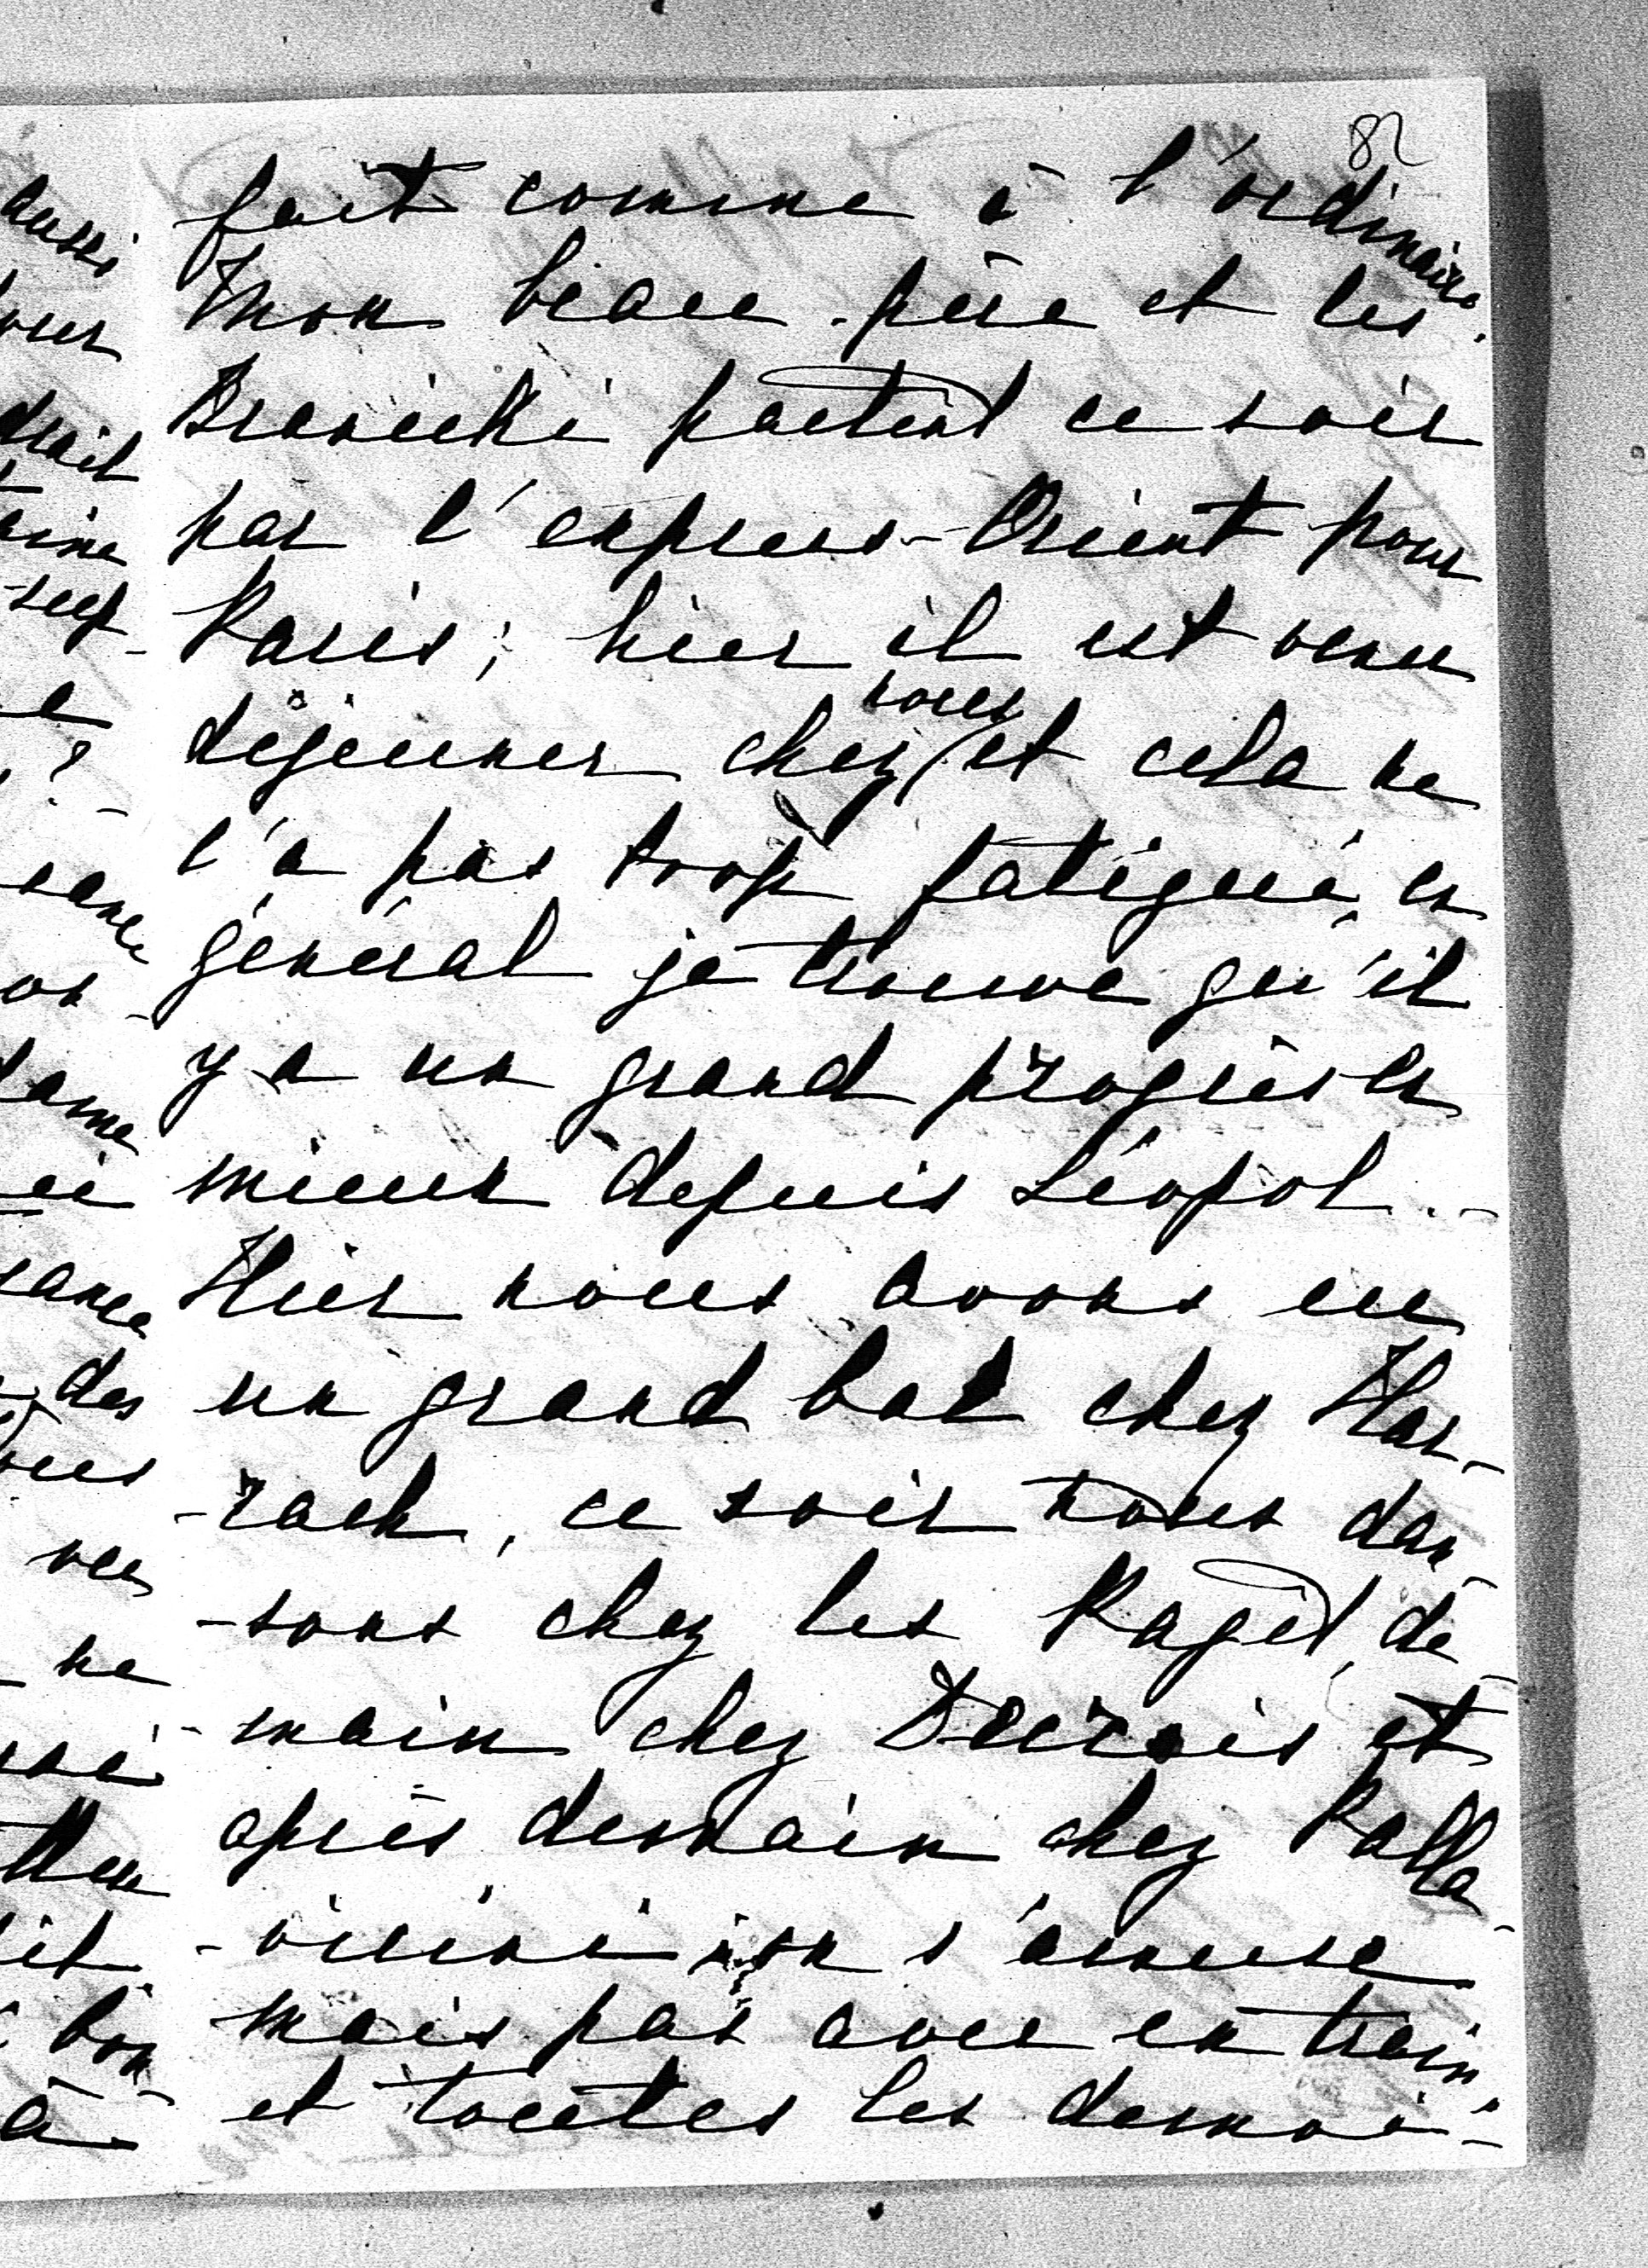 82
fait comme à l'ordinaire.
Mon beau-père et les
Branicki partent ce soir
par l'express-Orient pour
Paris; hier il est venu
déjeuner chez nous et cela ne
l'a pas trop fatigué, en
général je trouve qu'il
y a un grand progrès en
mieux depuis Léopol. -
Hier nous avons eu
un grand bal chez Har-
-rach, ce soir nous dan-
-sons chez les Paget, de-
-main chez Decrais et
après demain chez Palla-
-vicini; on s'amuse
mais pas avec entrain,
et toutes les demoi-
aussi
pour
drait
aine
e
?
dame
des
vous
ne
bon
à